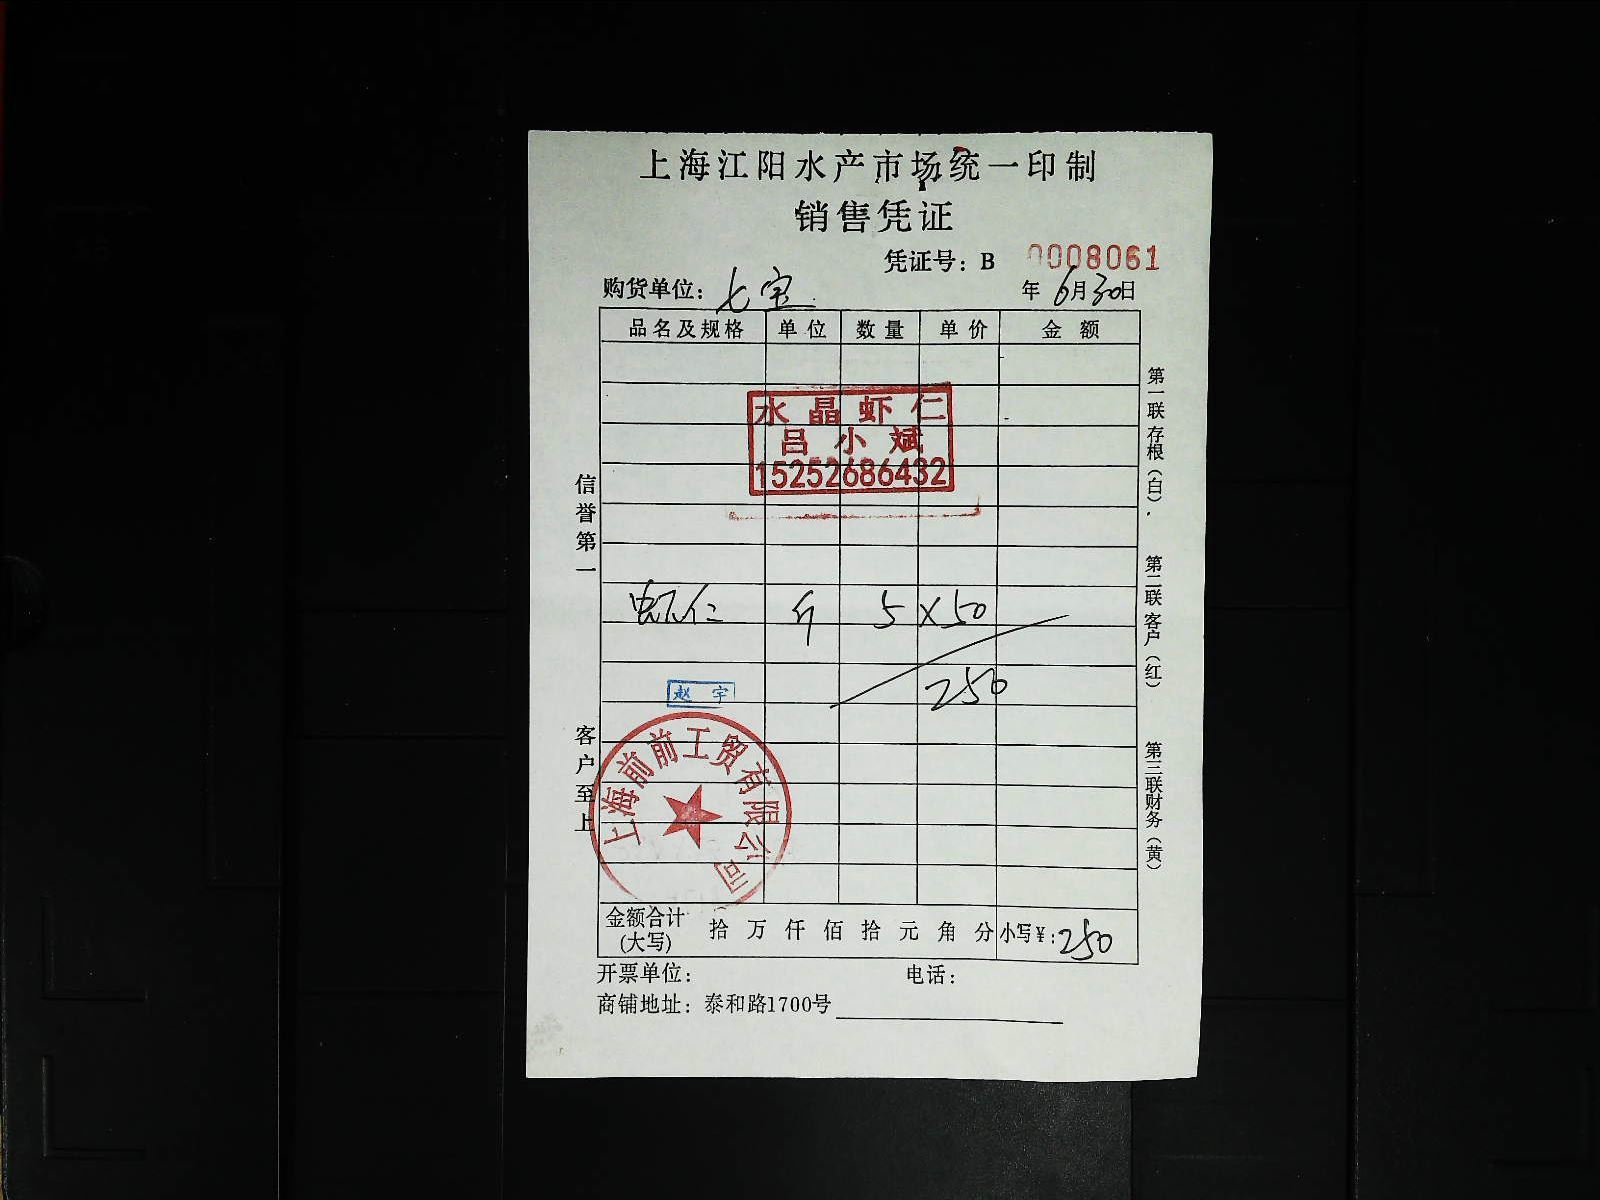 上海江阳水产市场统一印制
销售凭证
凭证号：B 0008061
购货单位：七宝 年6月30日
品名及规格 单位 数量 单价 金额
水晶虾仁
吕小斌
15252686432
虾仁 斤 5×50
250
赵宇
上海前前工贸有限公司
金额合计(大写) 拾 万 仟 佰 拾 元 角 分 小写¥：250
开票单位： 电话：
商铺地址：泰和路1700号
信誉第一
客户至上
第一联存根（白）.
第二联客户（红）
第三联财务（黄）